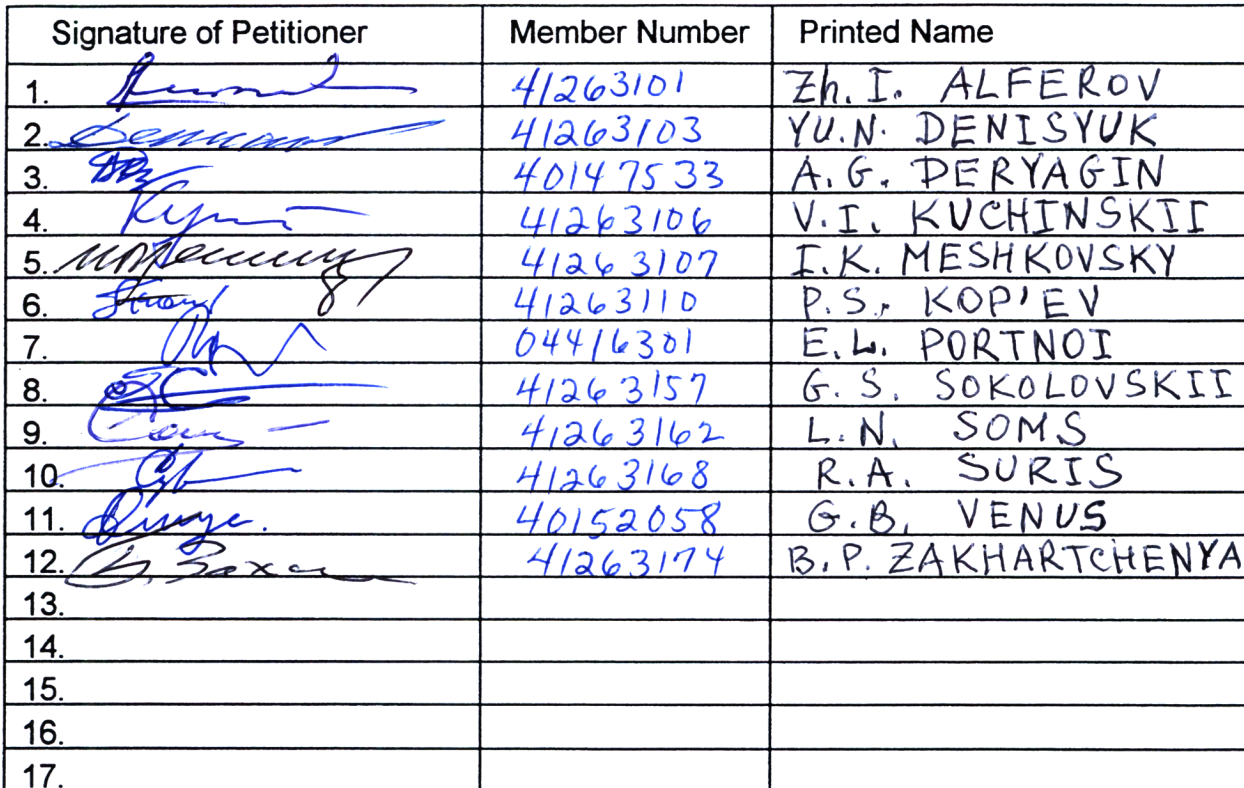 Signature of Petitioner Member Number Printed Name
1. 41263101 Zh. I. ALFEROV
2. 41263103 YU.N. DENISYUK
3. 40147533 A.G. DERYAGIN
4. 41263106 V.I. KUCHINSKII
5. 41263107 I.K. MESHKOVSKY
6. 41263110 P.S. KOP'EV
7. 04416301 E.L. PORTNOI
8. 41263157 G.S. SOKOLOVSKII
9. 41263162 L.N. SOMS
10. 41263168 R.A. SURIS
11. 40152058 G.B. VENUS
12. 41263174 B.P. ZAKHARTCHENYA
13.
14.
15.
16.
17.